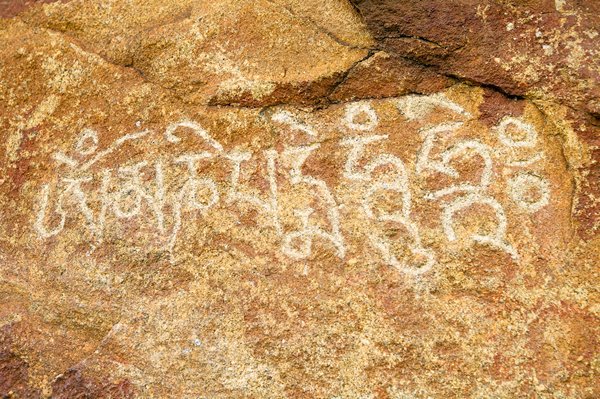 ཨོཾམཎིཔདྨེཧཱུྃཧྲཱིཿ